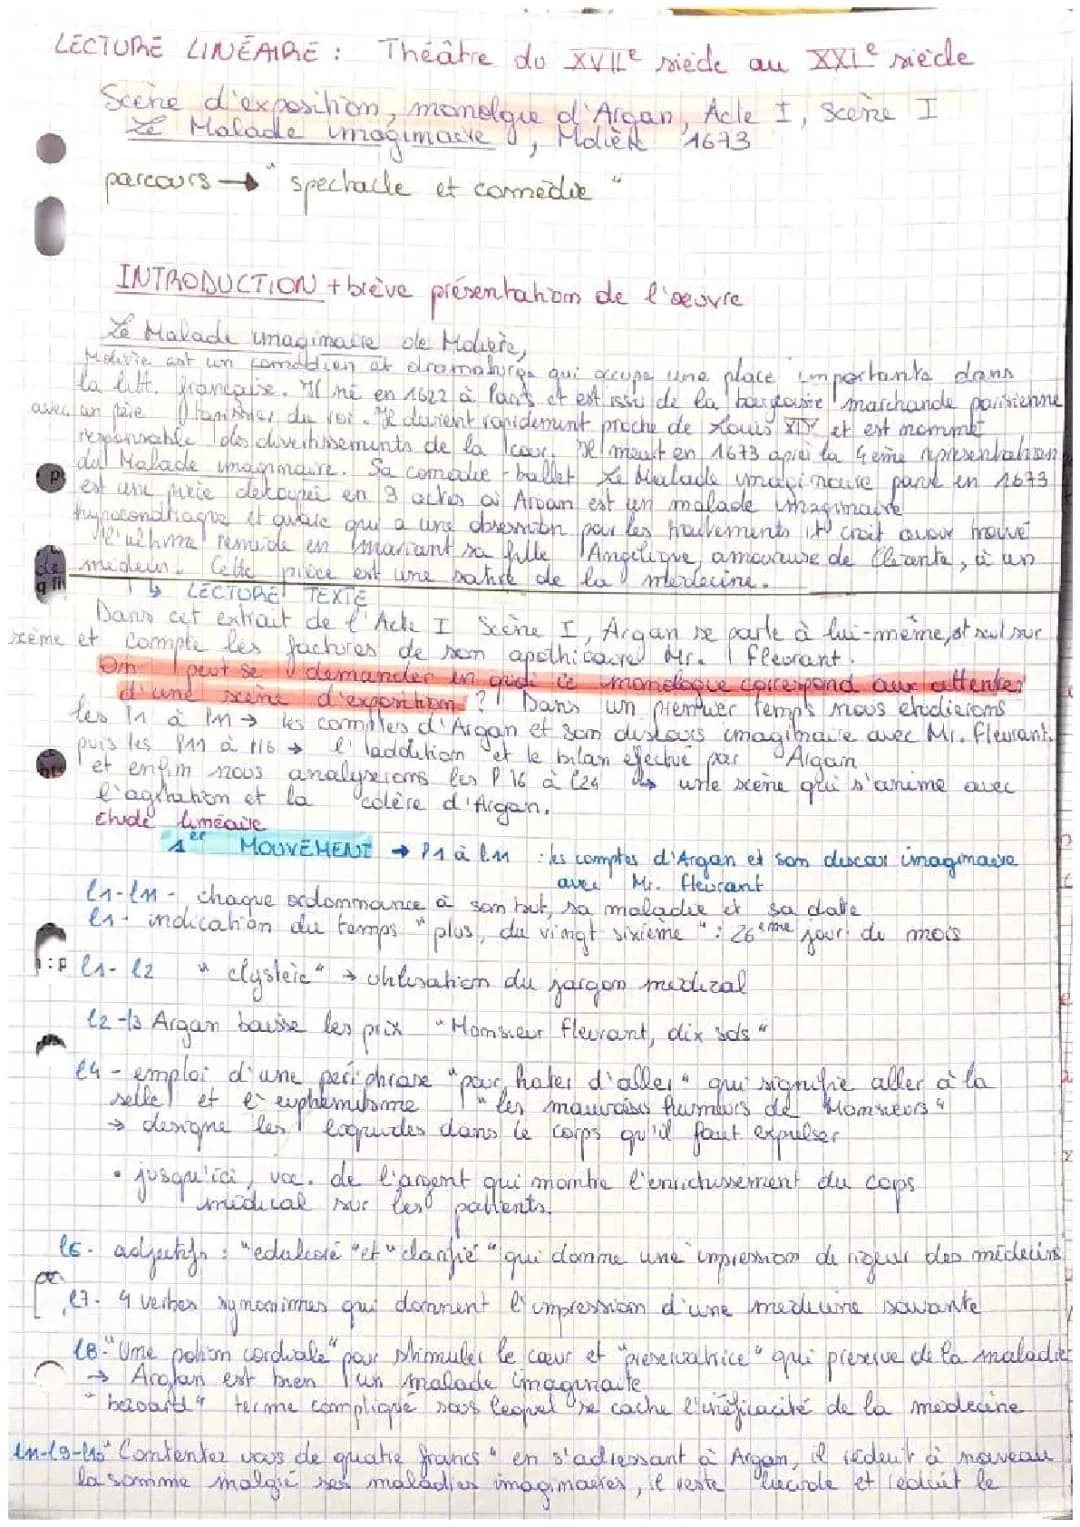 LECTURE LINÉAIRE : Théâtre du XVIIe siècle au XXIe siècle
Scène d'exposition, monologue d'Argan, Acte I, Scène I
Le Malade imaginaire, Molière 1673
parcours → "spectacle et comédie"
INTRODUCTION + brève présentation de l'oeuvre
Le Malade imaginaire de Molière,
Molière est un comédien et dramaturge qui occupe une place importante dans
la litt. française. Il né en 1622 à Paris et est issu de la bourgeoisie marchande parisienne
avec un père tapissier du roi. Il devient rapidement proche de Louis XIV et est nommé
responsable des divertissements de la cour. Il meurt en 1673 après la 4eme représentation
du Malade imaginaire. Sa comédie-ballet Le Malade imaginaire parue en 1673
est une pièce découpée en 3 actes où Argan est un malade imaginaire
hypocondriaque et avare qui a une obsession pour les traitements et croit avoir trouvé
l'ultime remède en mariant sa fille Angélique, amoureuse de Cléante, à un
médecin. Cette pièce est une satire de la médecine.
↳ LECTURE TEXTE
Dans cet extrait de l'Acte I Scène I, Argan se parle à lui-même, est seul sur
scème et compte les factures de son apothicaire Mr. Fleurant.
On peut se demander en quoi ce monologue correspond aux attentes
d'une scène d'exposition ? Dans un premier temps nous étudierons
les l1 à l11 → les comptes d'Argan et son discours imaginaire avec Mr. Fleurant.
puis les l11 à l16 → l'addition et le bilan effectué par Argan
et enfin nous analyserons les l16 à l24 → une scène qui s'anime avec
l'agitation et la colère d'Argan.
Etude linéaire
1er MOUVEMENT → l1 à l11 : les comptes d'Argan et son discour imaginaire
avec Mr. Fleurant
l1-l11 - chaque ordonnance à son but, sa maladie et sa date
l1 - indication du temps "plus, du vingt-sixième" : 26ème jour du mois
l1-l2 "clystère" → utilisation du jargon médical
l2-l3 Argan baisse les prix "Monsieur Fleurant, dix sols"
l4 - emploi d'une périphrase "pour hater d'aller" qui signifie aller à la
selle et l'euphémisme "les mauvaises humeurs de Monsieurs"
→ désigne les liquides dans le corps qu'il faut expulser
• jusqu'ici, voc. de l'argent qui montre l'enrichissement du corps
médical sur les patients.
l6 - adjectifs : "edulcoré" et "clarifié" qui donne une impression de rigueur des médecins
l7 - 4 verbes synonimes qui donnent l'impression d'une médecine savante
l8 - "Une potion cordiale" pour stimuler le cœur et "préservatrice" qui préserve de la maladie
→ Argan est bien un malade imaginaire
"bezoard" terme compliqué sous lequel se cache l'inéficacité de la médecine
l9-l10 "Contentez vous de quatre francs" en s'adressant à Argan, il réduit à nouveau
la somme malgré ses maladies imaginaires, il reste lucide et réduit le